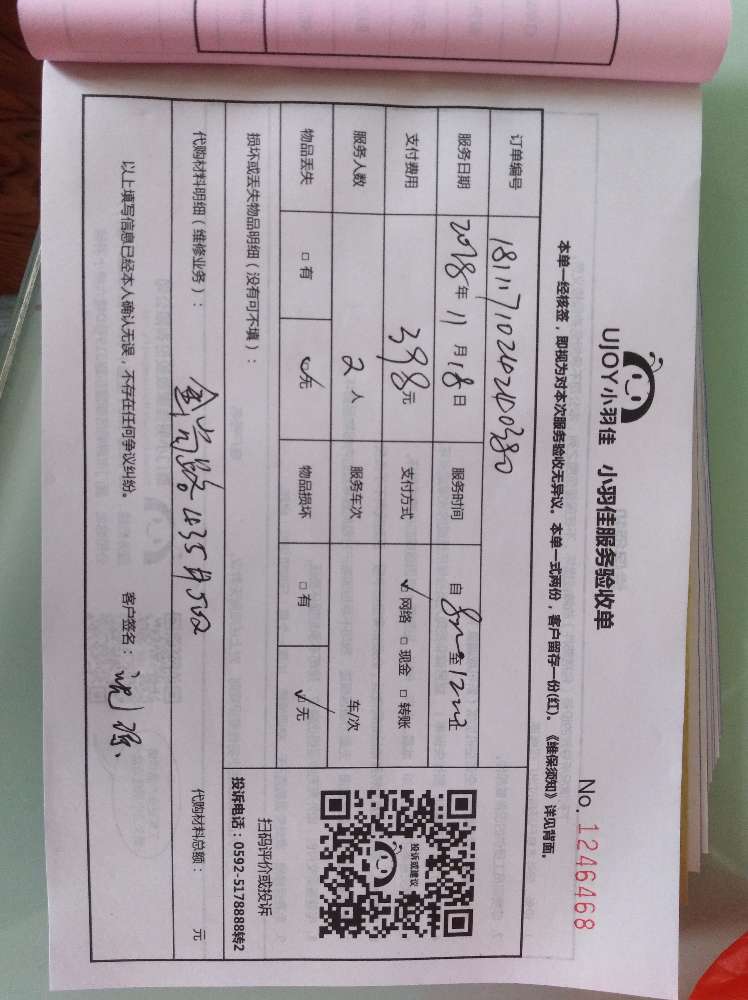 UJOY小羽佳 小羽佳服务验收单
No. 1246468
本单一经核签，即视为对本次服务验收无异议。本单一式两份，客户留存一份(红)。《维保须知》详见背面。
订单编号 181117102424240380
服务日期 2018年 11 月 18 日 服务时间 自 至 12
支付费用 398 元 支付方式 ☑ 网络 □ 现金 □ 转账
服务人数 2 人 服务车次 车/次
物品丢失 □ 有 ☑ 无 物品损坏 □ 有 ☑ 无
投诉或建议
扫码评价或投诉
投诉电话：0592-5178888转2
损坏或丢失物品明细（没有可不填）：
代购材料明细（维修业务）： 金尚路 435号502 代购材料总额： 元
以上填写信息已经本人确认无误，不存在任何争议纠纷。 客户签名：